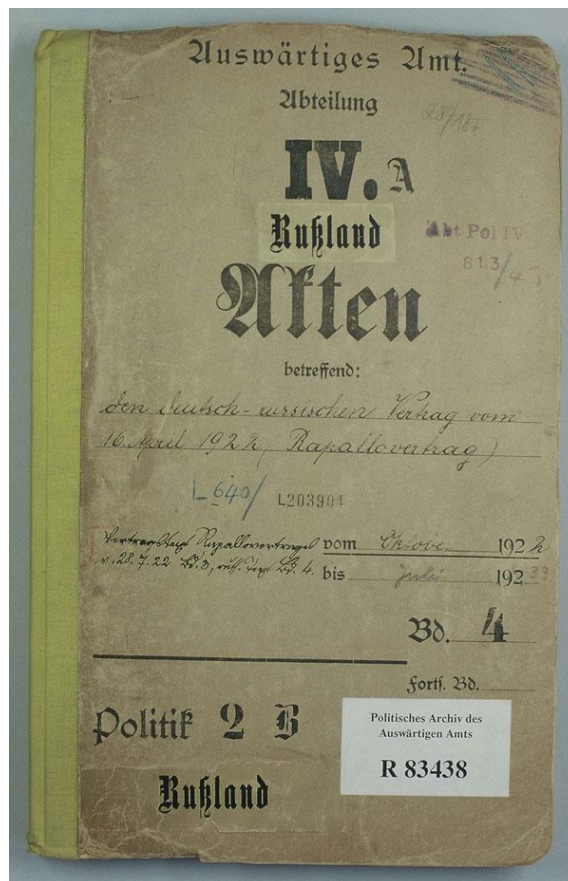 Auswärtiges Amt.
Abteilung
28/187
IV. A
Rußland
Abt Pol IV
813/4
Akten
betreffend:
den deutsch-russischen Vertrag vom
16. April 1922 (Rapallovertrag)
L 640/ L203904
Rapallovertrages vom Oktober 1922
v. 28.7.22 Bd. 3, Bd. 4. bis Juli 1933
Bd. 4
Forts. Bd.
Politik 2 B
Politisches Archiv des
Auswärtigen Amts
R 83438
Rußland